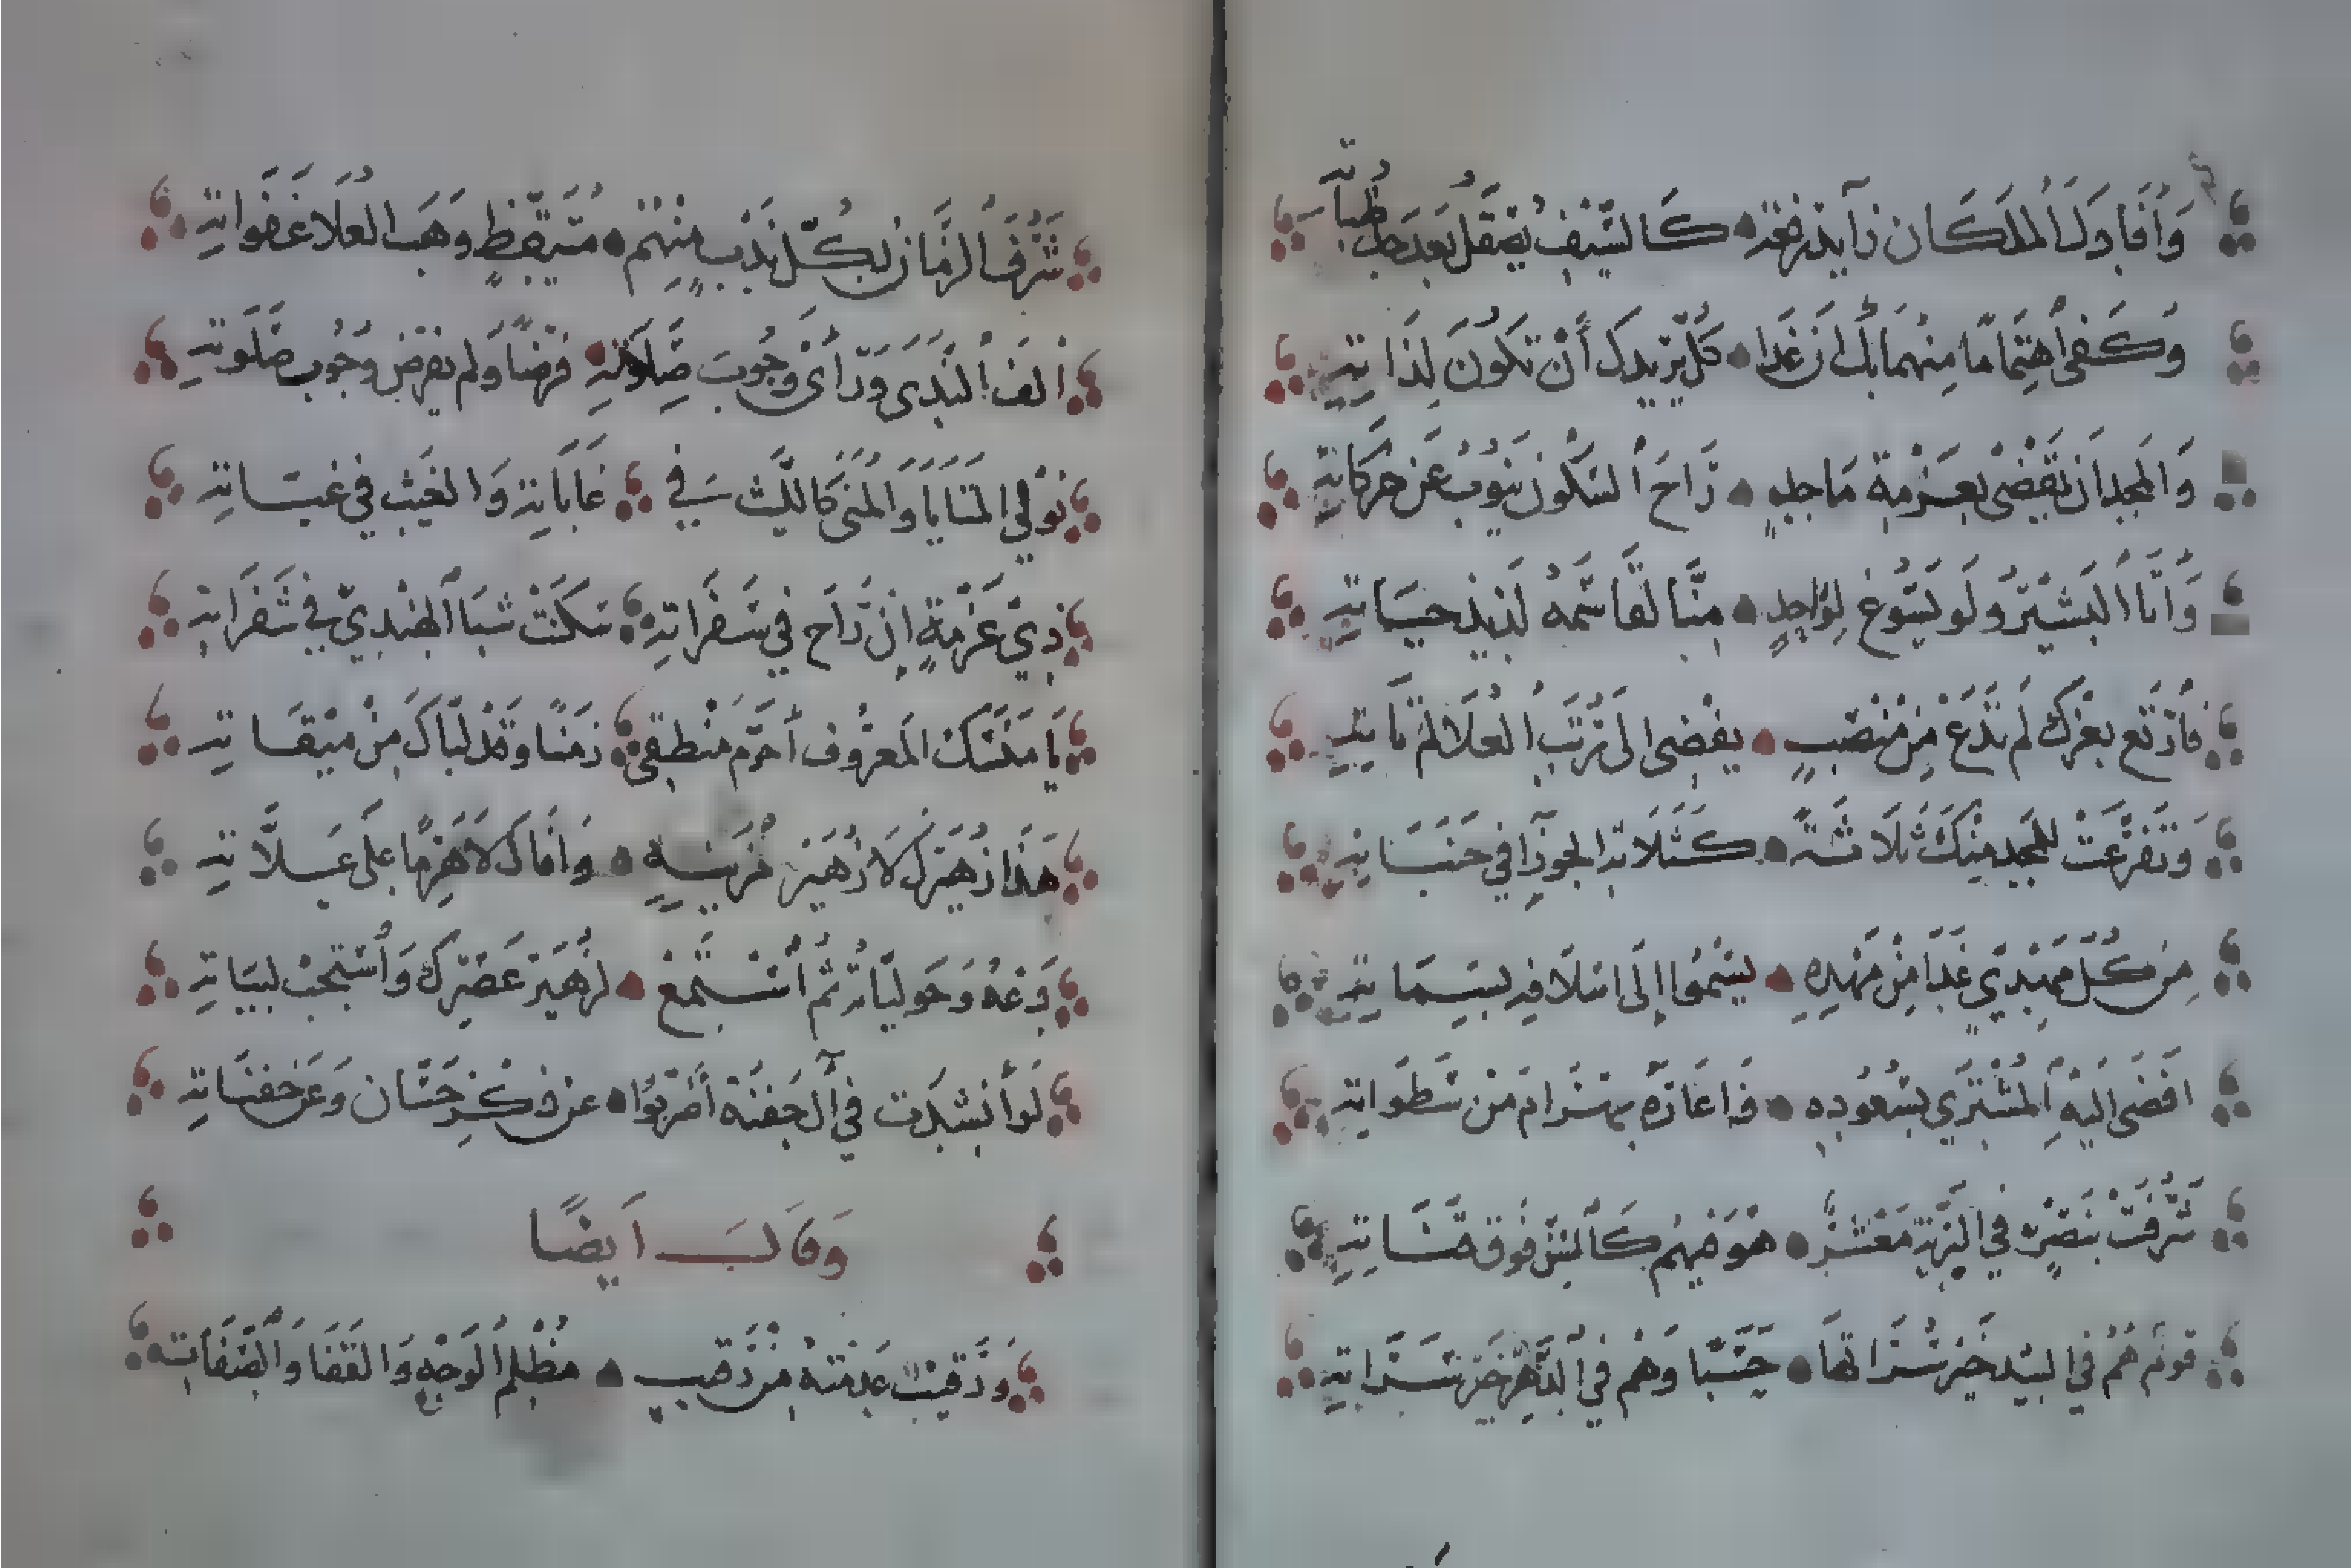 وَأَفَادَكَ الْمَلَكَانِ زَايِدَ رِفْعَةٍ كَالسَّيْفِ يُصْقَلُ بَعْدَ حَدِّ ظُبَاتِهِ
وَكَفَى اهْتِمَامًا مِنْهُمَا بِكَ أَنْ غَدَا كُلٌّ يُرِيدُكَ أَنْ تَكُونَ لِذَاتِهِ
وَالْمَجْدُ إِنْ تَقْضِي بِعَزْمَةِ مَاجِدٍ رَاحَ السُّكُونُ يَنُوبُ عَنْ حَرَكَاتِهِ
وَأَنَا الْبَشِيرُ وَلَو يَسُوغُ لِوَاحِدٍ مِنَّا لَقَاسَمَهُ لَذِيذَ حَيَاتِهِ
فَارْتَعْ بِعِزِّكَ لَمْ تَدَعْ مِنْ مَنْصِبٍ يُفْضِي إِلَى رُتَبِ الْعُلَا لَمْ تَاتِهِ
وَتَفَرَّعَتْ لِلْمَجْدِ مِنْكَ ثَلَاثَةٌ كَثَلَاثَةِ الْجَوْزَا فِي جَنَبَاتِهِ
مِنْ كُلِّ مُهْتَدِيٍ غَدَا مِنْ مَهْدِهِ يَسْمُوا إِلَى اسْلَافِهِ بِسِمَاتِهِ
أَفْضَى إِلَيْهِ الْمُشْتَرِي بِسُعُودِهِ وَأَعَارَهُ بَهْرَامُ مِنْ سَطَوَاتِهِ
شَرُفَتْ بِنَصْرٍ فِي الْبَرِيَّةِ مَعْشَرٌ هُوَ فِيهُمُ كَالسِّنِّ فَوْقَ قَنَاتِهِ
قَوْمٌ هُمُ فِي الْبِيدِ خَيْرُ سَرَاتِهَا حَسَبًا وَهُمْ فِي الدَّهْرِ خَيْرُ سَرَاتِهِ
شَرُفَ الزَّمَانُ بِكُلِّ نَدْبٍ مِنْهُمُ مُتَيَقِّظٍ وَهَبَ الْعُلَا غَفَوَاتِهِ
أَلِفَ النَّدَى وَرَأَى وُجُوبَ صِلَاتِهِ فَرْضًا وَلَم يَفْرِضْ وُجُوبَ صَلَوتِهِ
فِي الْمَنَايَا وَالْمُنَى كَاللَّيْثِ فِي غَابَاتِهِ وَالْغَيْثِ فِي غَيَّاتِهِ
ذِي عَزْمَةٍ إِنْ رَاحَ فِي سَفَرَاتِهِ سَكَنَتْ شَبَا الْهِنْدِيِّ فِي شَفَرَاتِهِ
يَا مَنْسَكَ الْمَعْرُوفِ أَحْرَمَ مَنْطِقِي زَمَنًا وَقَدْ لَبَّاكَ مِنْ مِيقَاتِهِ
هَذَا زُهَيْرُكَ لَا زُهَيْرُ مُزَيْنَةٍ وَافَاكَ لَا هَرِمًا عَلَى عَلَّاتِهِ
دَعْهُ وَحَوْلِيَّاتِهِ ثُمَّ اسْتَمِعْ لِزُهَيْرِ عَصْرِكَ وَاسْتَجِبْ لِيَاتِهِ
لَو أُنْشِدَتْ فِي آلِ جَفْنَةَ أَضْرَبُوا عَن ذِكْرِ حَسَّانٍ وَعَن جَفَنَاتِهِ
وَقَالَ أَيْضًا
وَرَقِيبٍ عَدِمْتُهُ مِنْ رَقِيبٍ مُظْلِمِ الْوَجْهِ وَالْقَفَا وَالصِّفَاتِ